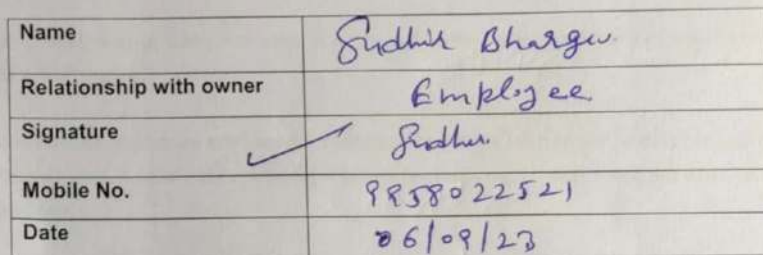 Name Sudhir Bhargav
Relationship with owner Employee
Signature Sudhir
Mobile No. 9958022521
Date 06/09/23